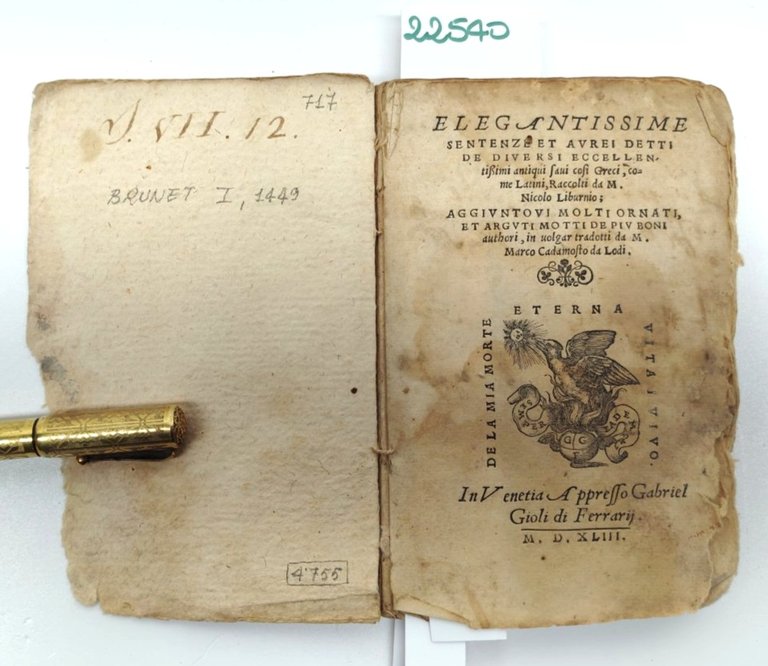 22540
717
VII. 12.
BRUNET I, 1449
4755
ELEGANTISSIME
SENTENZE ET AVREI DETTI
DE DIVERSI ECCELLEN-
tißimi antiqui ſaui coſi Greci, co-
me Latini, Raccolti da M.
Nicolo Liburnio;
AGGIVNTOVI MOLTI ORNATI,
ET ARGVTI MOTTI DE PIV BONI
authori, in uolgar tradotti da M.
Marco Cadamoſto da Lodi.
DE LA MIA MORTE
ETERNA
VITA I VIVO.
SEMPER
G
In Venetia Appreſſo Gabriel
Gioli di Ferrarij.
M. D. XLIII.